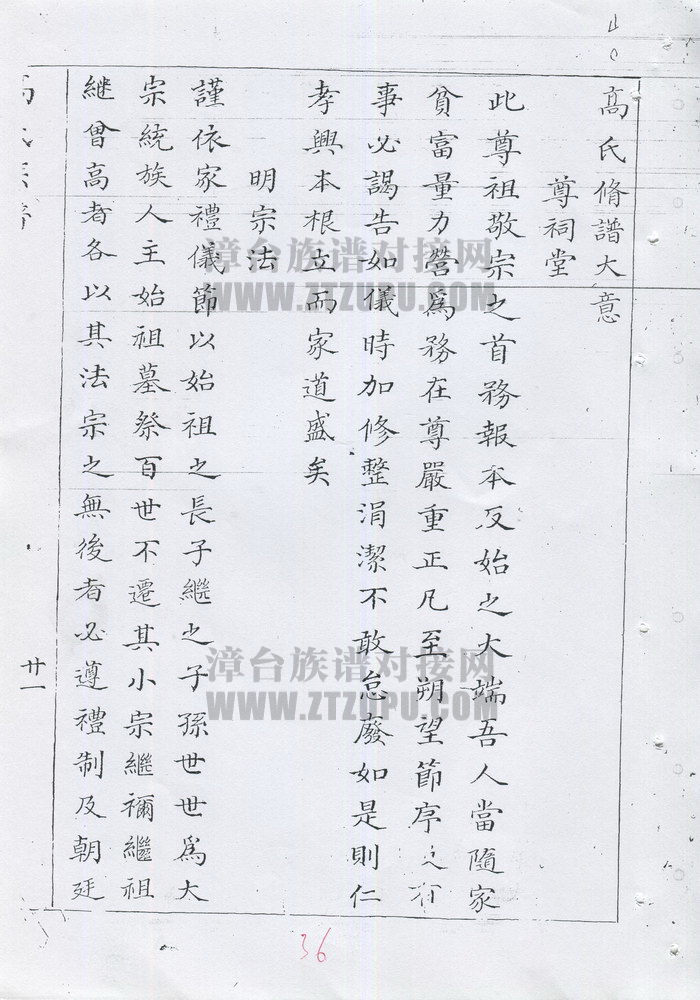 高氏脩譜大意
尊祠堂
此尊祖敬宗之首務報本反始之大端吾人當隨家
貧富量力營爲務在尊嚴重正凡至朔望節序之有
事必謁告如儀時加修整涓潔不敢怠廢如是則仁
孝興本根立而家道盛矣
明宗法
謹依家禮儀節以始祖之長子繼之子孫世世爲大
宗統族人主始祖墓祭百世不遷其小宗繼禰繼祖
継曾高者各以其法宗之無後者必遵禮制及朝廷
廿一
36
漳台族谱对接网
WWW.ZTZUPU.COM
漳台族谱对接网
WWW.ZTZUPU.COM